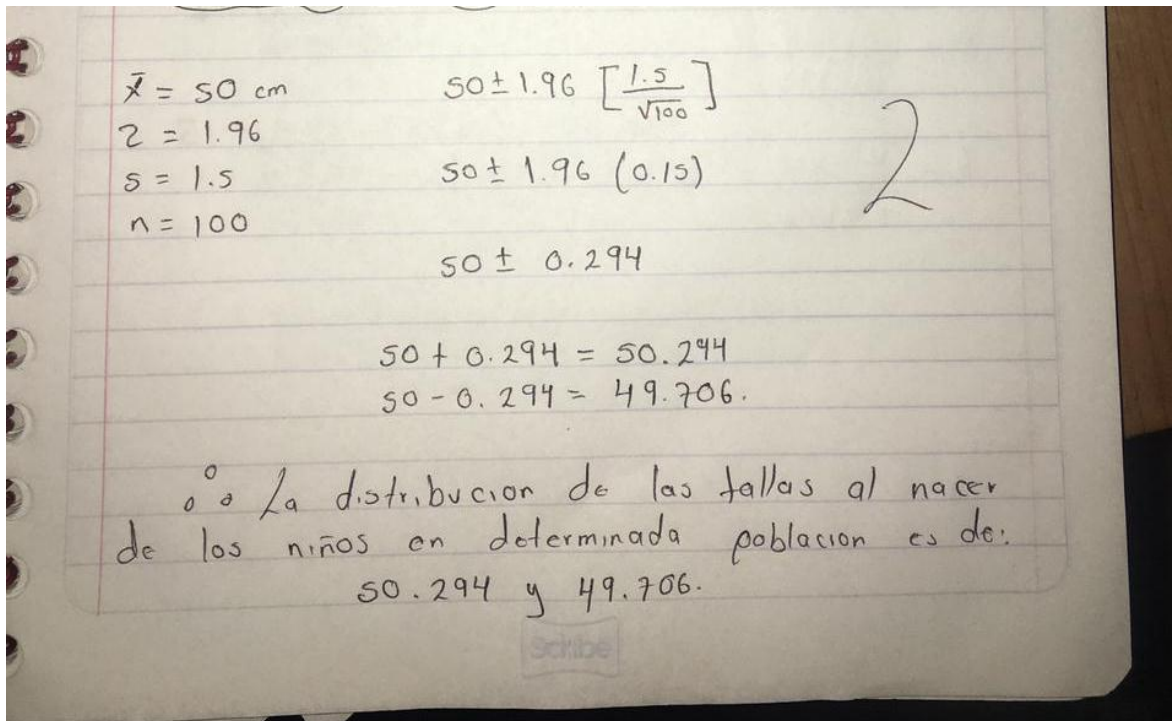 x̄ = 50 cm
z = 1.96
s = 1.5
n = 100
50 ± 1.96 [1.5/√100]
50 ± 1.96 (0.15)
50 ± 0.294
2
50 + 0.294 = 50.294
50 - 0.294 = 49.706.
∴ La distribucion de las tallas al nacer
de los niños en determinada poblacion es de:
50.294 y 49.706.
Scribe